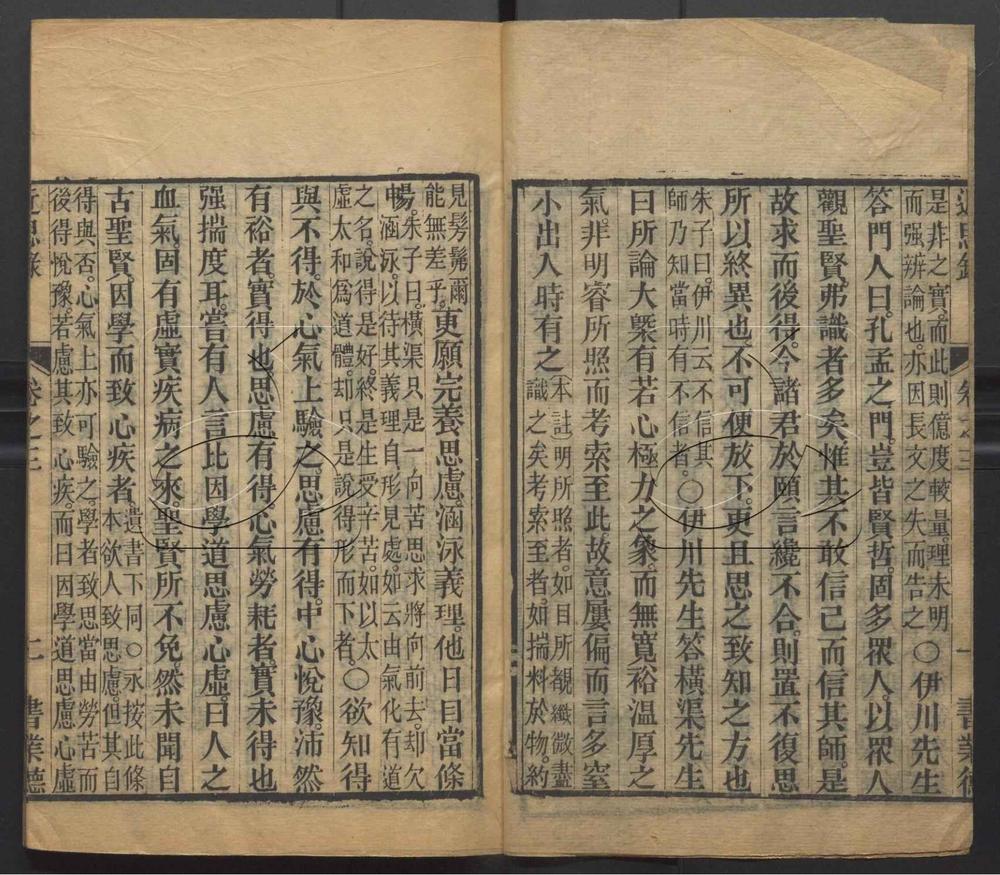 是非之實。而此則億度較量。理未明
而强辨論也。亦因長文之失而告之
○伊川先生
答門人曰。孔孟之門。豈皆賢哲。固多眾人。以眾人
觀聖賢。弗識者多矣。惟其不敢信己而信其師。是
故求而後得。今諸君於頤言纔不合。則置不復思
所以終異也。不可便放下。更且思之。致知之方也
朱子曰。伊川云不信其
師乃知當時有不信者。
○伊川先生答橫渠先生
曰所論大槩有若心極力之象。而無寬裕溫厚之
氣。非明睿所照。而考索至此。故意屢偏而言多窒
小出入時有之
本註明所照者。如目所覩。纖微盡
識之矣。考索至者。如揣料於物。約
見髣髴爾。
能無差乎。
更願完養思慮。涵泳義理。他日自當條
暢。
朱子曰。橫渠只是一向苦思求將向前去。却欠
涵泳。以待其義理自形見處。如云由氣化有道
之名。說得是好。終是生受辛苦。如以太
虛太和爲道體。却只是說得形而下者。
○欲知得
與不得。於心氣上驗之。思慮有得。中心悅豫。沛然
有裕者。實得也。思慮有得。心氣勞耗者。實未得也
强揣度耳。嘗有人言比因學道思慮心虛。曰人之
血氣。固有虛實。疾病之來。聖賢所不免。然未聞自
古聖賢。因學而致心疾者。
遺書下同。○永按。此條
本欲人致思慮。但其自
得與否。心氣上亦可驗之。學者致思當由勞苦而
後得悅豫。若慮其致心疾。而曰因學道思慮心虛
近思錄
卷之三
二
書業德
近思錄
卷之三
一
書業德